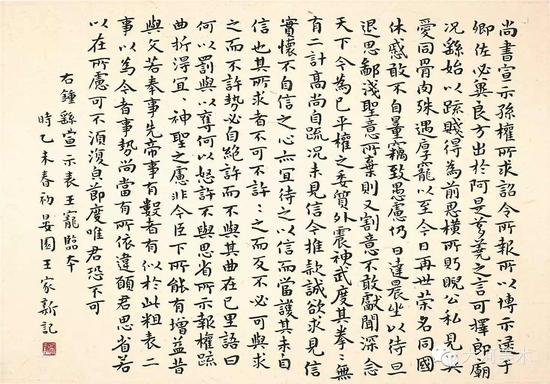 尚書宣示孫權所求詔令所報所以博示逮于
卿佐必冀良方出於阿是芻蕘之言可擇郎廟
況繇始以疏賤得為前恩橫所眄睨公私見異
愛同骨肉殊遇厚寵以至今日再世榮名同國
休慼敢不自量竊致愚慮仍日達晨坐以待旦
退思鄙淺聖意所棄則又割意不敢獻聞深念
天下今為已平權之委質外震神武度其拳々無
有二計高尚自疏況未見信今推款誠欲求見信
實懷不自信之心亦宜待之以信而當護其未自
信也其所求者不可不許々之而反不必可與求
之而不許勢必自絕許而不與其曲在己里語曰
何以罰與以奪何以怒許不與思省所示報權疏
曲折得宜々神聖之慮非今臣下所能有增益昔
與文若奉事先帝事有數者有似於此粗表二
事以為今者事勢尚當有所依違願君思省若
以在所慮可不須復貞節度唯君恐不可
右鍾繇宣示表王寵臨本
時乙未春初晏園王家新記